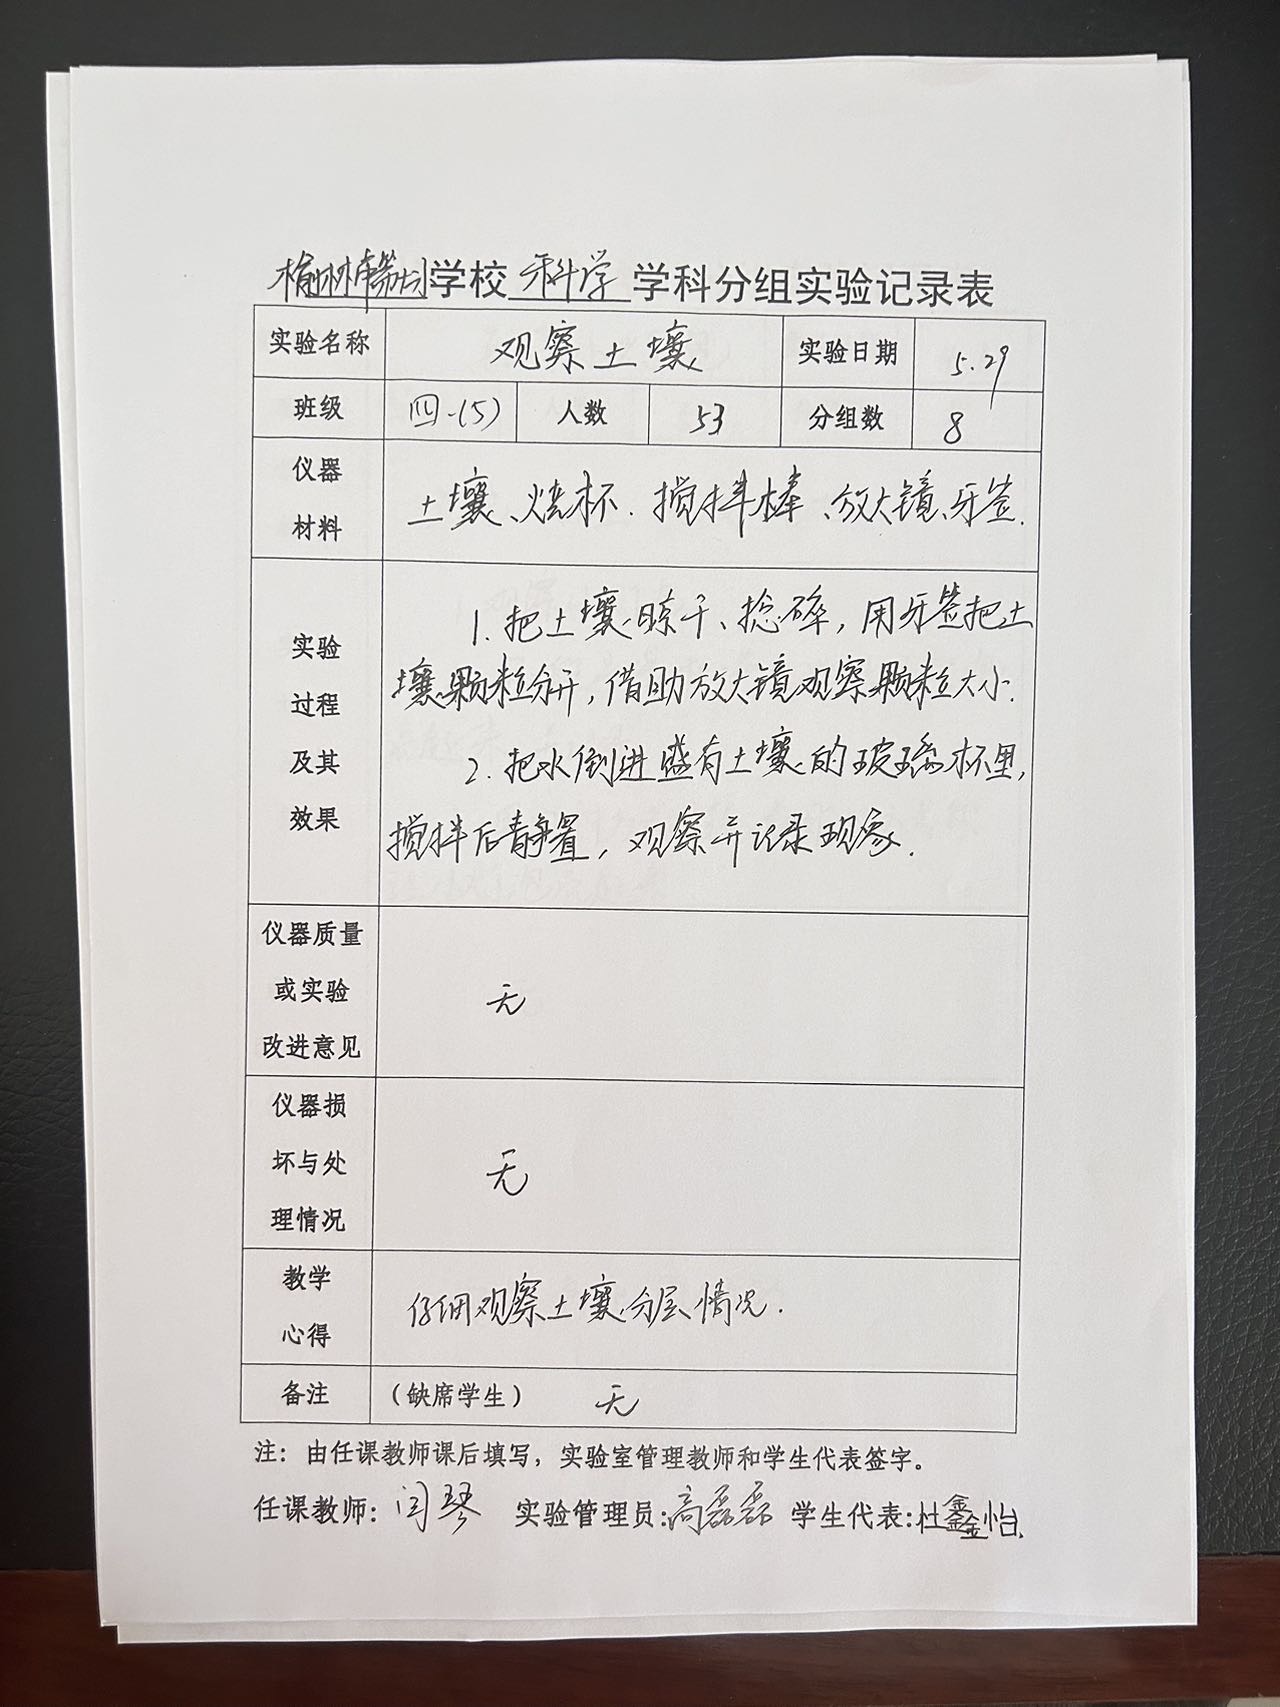 榆林市第七小学校 科学 学科分组实验记录表
实验名称 观察土壤 实验日期 5.29
班级 四.(5) 人数 53 分组数 8
仪器
材料
土壤、烧杯.搅拌棒、放大镜、牙签.
实验
过程
及其
效果
1.把土壤晾干、捻碎,用牙签把土
壤颗粒分开,借助放大镜观察颗粒大小.
2.把水倒进盛有土壤的玻璃杯里,
搅拌后静置,观察并记录现象.
仪器质量
或实验
改进意见
无
仪器损
坏与处
理情况
无
教学
心得
仔细观察土壤分层情况.
备注 (缺席学生) 无
注:由任课教师课后填写,实验室管理教师和学生代表签字。
任课教师:闫琴 实验管理员:高磊磊 学生代表:杜鑫怡